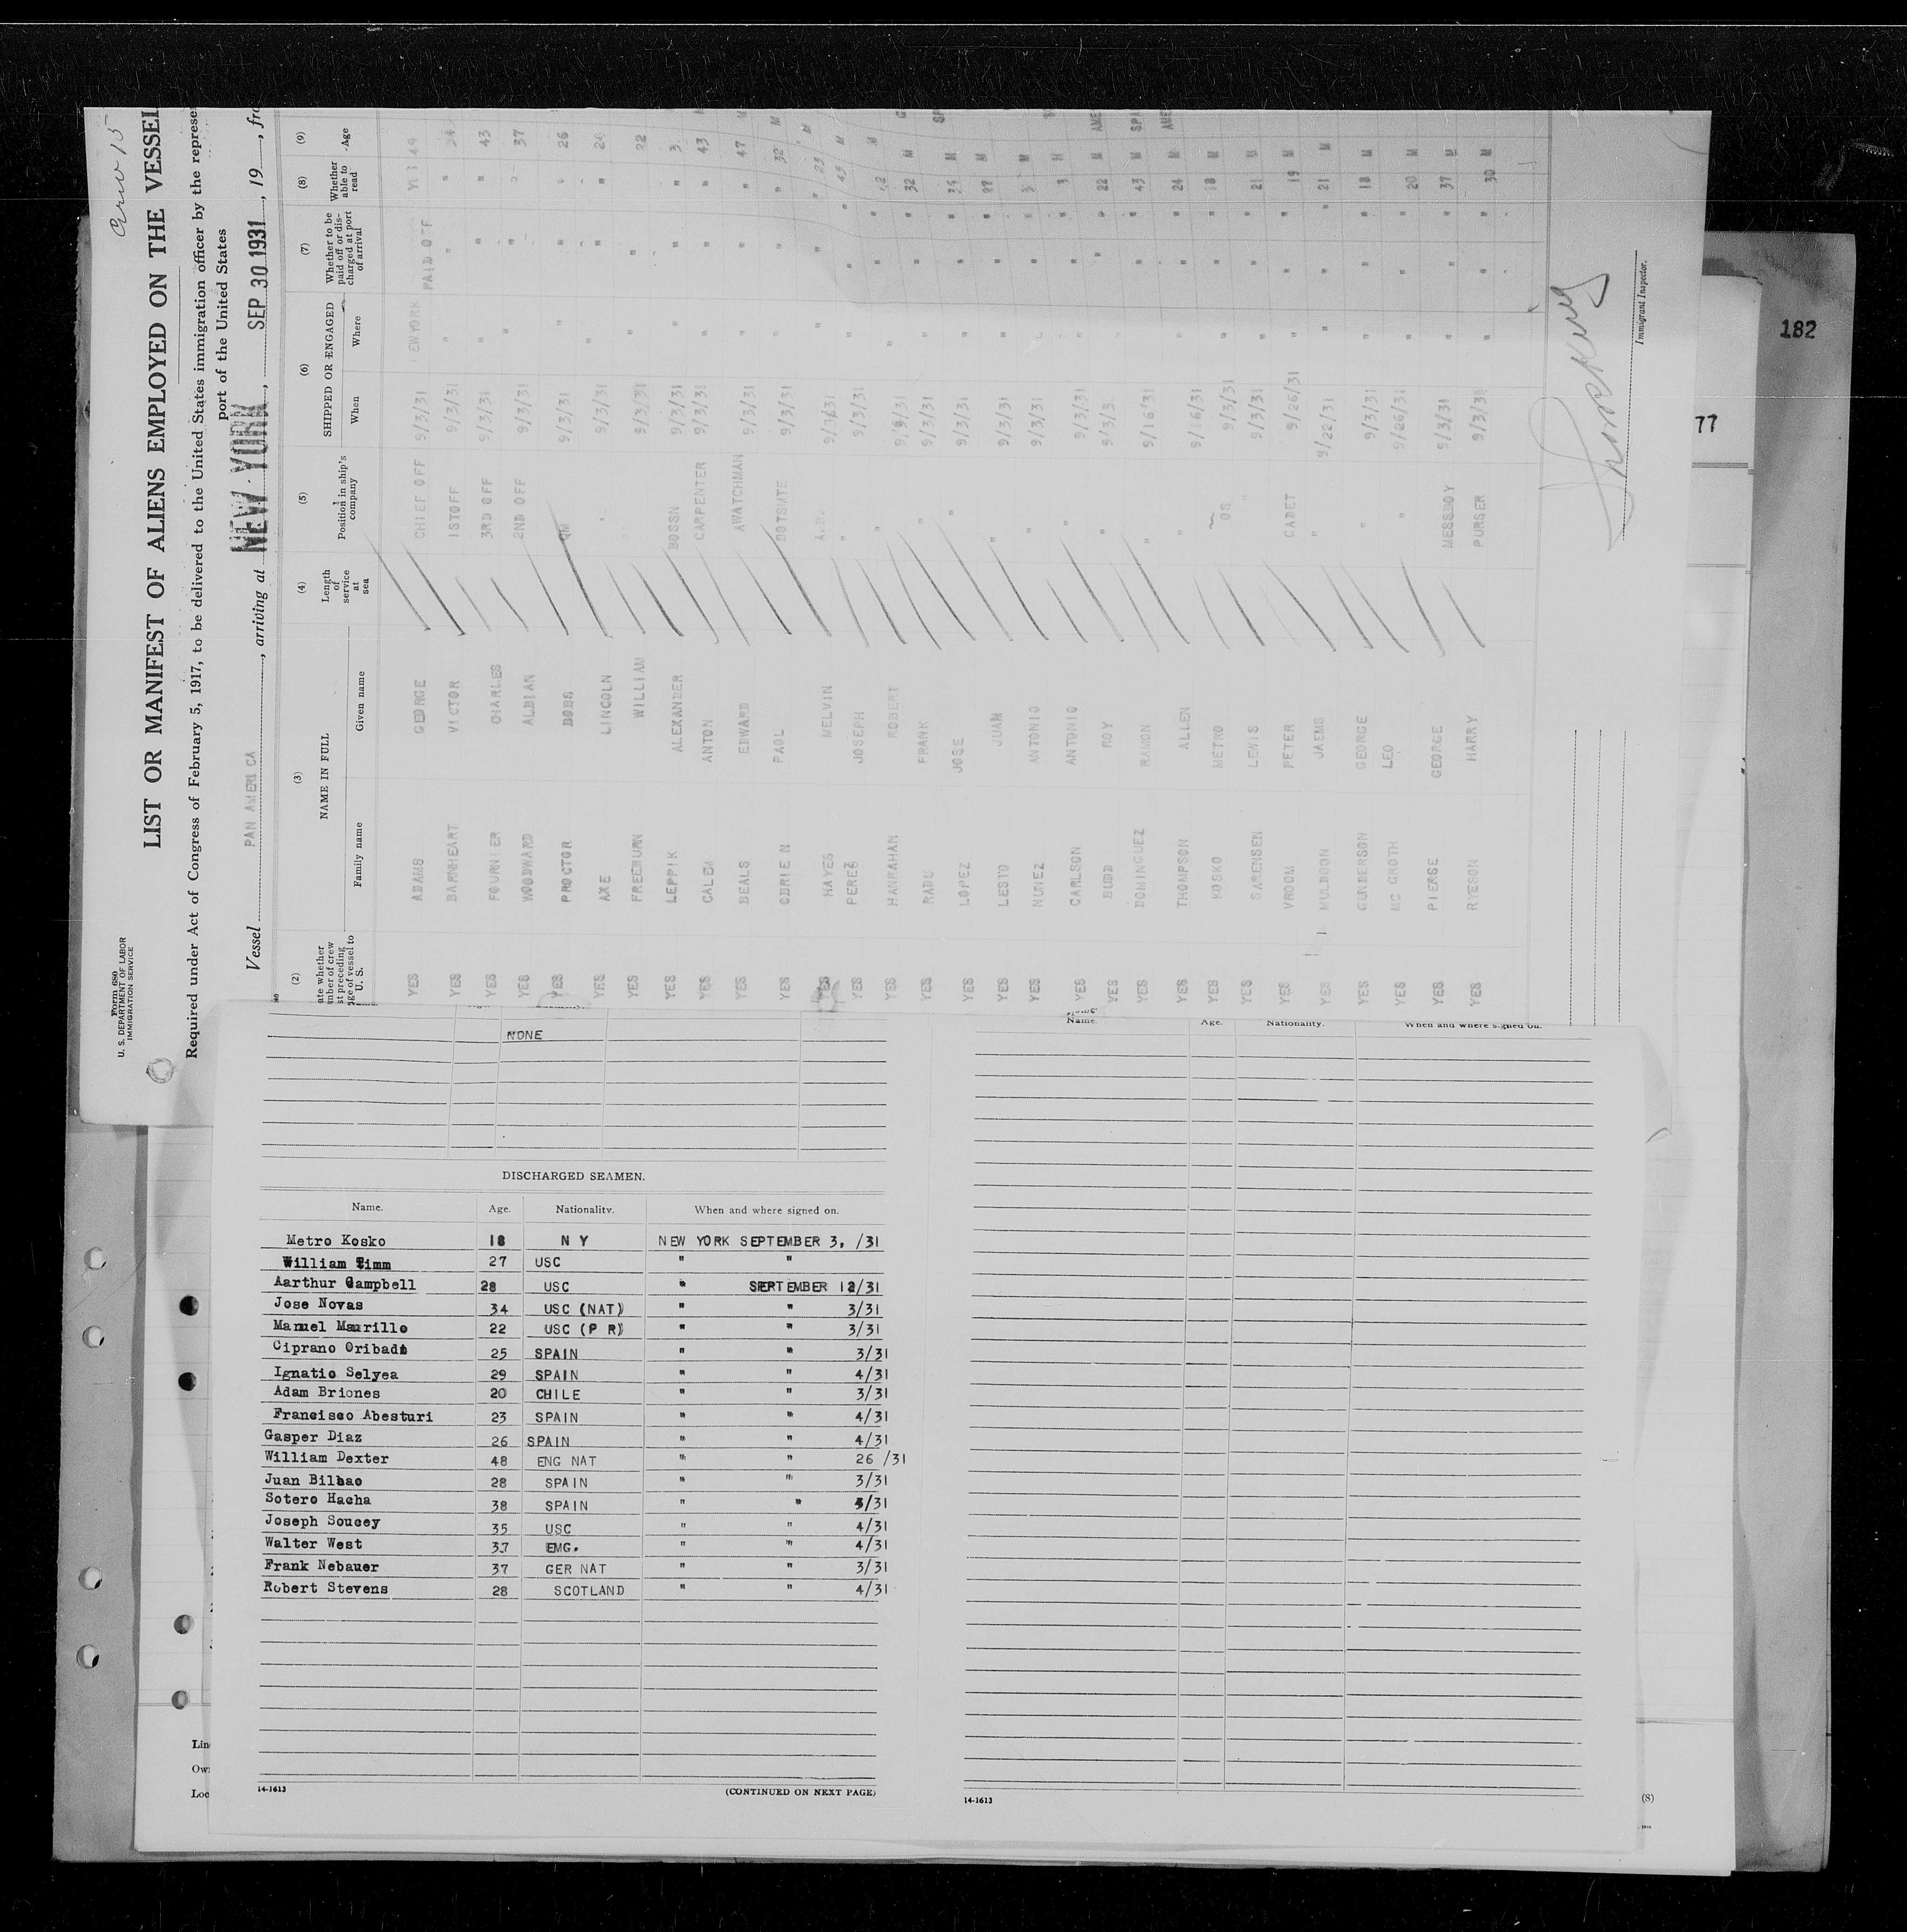 Form 680
U. S. DEPARTMENT OF LABOR
IMMIGRATION SERVICE
LIST OR MANIFEST OF ALIENS EMPLOYED ON THE VESSEL
Required under Act of Congress of February 5, 1917, to be delivered to the United States immigration officer by the represen
port of the United States
Vessel PAN AMERICA, arriving at NEW YORK, SEP 30 1931, 19, fro
(2) (3) (4) (5) (6) (7) (8) (9)
NAME IN FULL
Family name Given name
Length of service at sea
Position in ship's company
SHIPPED OR ENGAGED
When Where
Whether to be paid off or discharged at port of arrival
Whether able to read
Age
YES ADAMS GEORGE CHIEF OFF 9/3/31 EWYORK PAID OFF 49
YES BARNHEART VICTOR 1STOFF 9/3/31 " " " 34
YES FOURNIER CHARLES 3RD OFF 9/3/31 " " " 43
YES WOODWARD ALBIAN 2ND OFF 9/3/31 " " " 37
YES PROCTOR BOBS QM 9/3/31 " " " 26
YES AXE LINCOLN " 9/3/31 " " "
YES FREEBURN WILLIAM 9/3/31 " " 22
YES LEPPIK ALEXANDER BOSSN 9/3/31 " " "
YES CALEM ANTON CARPENTER 9/3/31 " " " 43
YES BEALS EDWARD AWATCHMAN 9/3/31 " " " 47 M
YES OBRIEN PAOL BOTSMTE 9/3/31 " " " 32 M
YES HAYES MELVIN A.B. 9/3/31 " " " 23 M
YES PEREZ JOSEPH " 9/3/31 " " " M
YES HANRAHAN ROBERT " 9/3/31 " " " M
YES RADU FRANK " 9/3/31 " " " 32 M
YES LOPEZ JOSE " 9/3/31 " " " M
YES LESTO JUAN " 9/3/31 " " " 27 M
YES NUNEZ ANTONIO " 9/3/31 " " " M
YES CARLSON ANTONIO " 9/3/31 " " " M
YES BUDD ROY " " " 22 M AME
YES DOMINGUEZ RAMON " 9/16/31 " " 43 M SPA
YES THOMPSON ALLEN " 9/16/31 " " " 24 M AME
YES KOSKO METRO OS 9/3/31 " " " 18 M
YES SARENSEN LEWIS " 9/3/31 " " " 21 M
YES VROOM PETER CADET 9/26/31 " " " 19 M
YES MULDOON JAEMS " 9/22/31 " " " 21 M
YES GUNDERSON GEORGE " 9/3/31 " " " 18 M
YES MC GROTH LEO " 9/26/31 " " " 20 M
YES PIERSE GEORGE MESSBOY 9/3/31 " " " 37 M
YES RYESON HARRY PURSER 9/3/31 " " " 30 M
Immigrant Inspector.
182
77
NONE
DISCHARGED SEAMEN.
Name. Age. Nationality. When and where signed on.
Metro Kosko 18 N Y NEW YORK SEPTEMBER 3, /31
William Timm 27 USC " "
Aarthur Campbell 28 USC " SEPTEMBER 12/31
Jose Novas 34 USC (NAT) " " 3/31
Manuel Maurillo 22 USC (P R) " " 3/31
Ciprano Oribadi 25 SPAIN " " 3/31
Ignatio Selyea 29 SPAIN " " 4/31
Adam Briones 20 CHILE " " 3/31
Francisco Abesturi 23 SPAIN " " 4/31
Gasper Diaz 26 SPAIN " " 4/31
William Dexter 48 ENG NAT " " 26 /31
Juan Bilbao 28 SPAIN " " 3/31
Sotero Hacha 38 SPAIN " " 3/31
Joseph Soucey 35 USC " " 4/31
Walter West 37 EMG. " " 4/31
Frank Nebauer 37 GER NAT " " 3/31
Robert Stevens 28 SCOTLAND " " 4/31
14-1613 (CONTINUED ON NEXT PAGE)
Name. Age. Nationality. When and where signed on.
14-1613
Lin
Ow
Loc
(8)